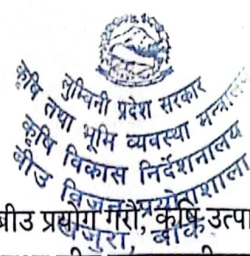 लुम्बिनी प्रदेश सरकार
कृषि तथा भूमि व्यवस्था मन्त्रालय
कृषि विकास निर्देशनालय
बीउ विजन प्रयोगशाला
खजुरा, बाँके
बीउ प्रयोग गरौं, कृषि उत्पा